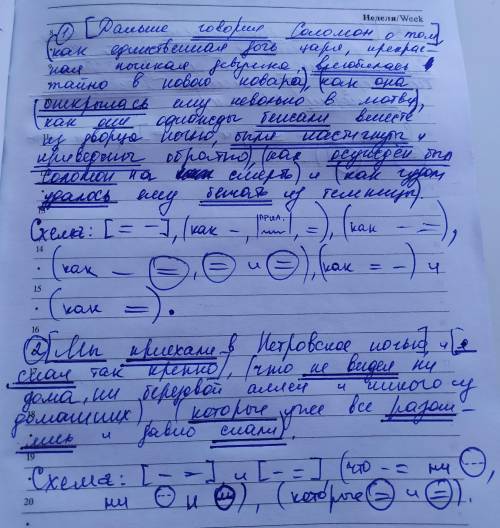 Неделя/Week
① [Дальше говорил Соломон о том]
(как единственная дочь царя, прекрас-
ная пылкая девушка, влюбилась
тайно в нового повара), (как она
открылась ему невольно в любви),
(как они однажды бежали вместе
из дворца ночью, были настигнуты и
приведены обратно), (как осуждён был
Соломон на смерть) и (как чудом
удалось ему бежать из темницы).
Схема: [= -], (как -, |прил.|, =), (как - =),
14
(как — =, = и =), (как = -) и
15
(как =).
16
② [Мы приехали в Петровское ночью] и [я
спал так крепко], (что не видел ни
дома, ни берёзовой аллеи и никого из
18
домашних), (которые уже все разош-
лись и давно спали).
19
Схема: [- =] и [- =] (что - = ни
20 ни и), (которые = и =).